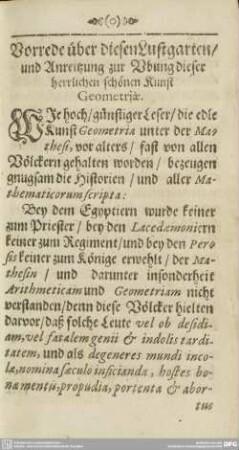 (o)
Vorrede über diesen Lustgarten/
und Anreitzung zur Vbung dieser
herrlichen schönen Kunst
Geometriæ.
WIe hoch/günstiger Leser/ die edle
Kunst Geometria unter der Ma-
thesi, vor alters/ fast von allen
Völckern gehalten worden/ bezeugen
gnugsam die Historien/ und aller Ma-
thematicorum scripta:
Bey dem Egyptiern wurde keiner
zum Priester/ bey den Lacedæmoniern
keiner zum Regiment/ und bey den Per-
sis keiner zum Könige erwehlt/ der Ma-
thesin/ und darunter insonderheit
Arithmeticam und Geometriam nicht
verstanden/ denn diese Völcker hielten
darvor/ daß solche Leute vel ob desidi-
am, vel fatalem genii & indolis tardi-
tatem, und als degeneres mundi inco-
læ, nomina sæculo inficianda, hostes bo-
na mentis, propudia, portenta & abor-
tus